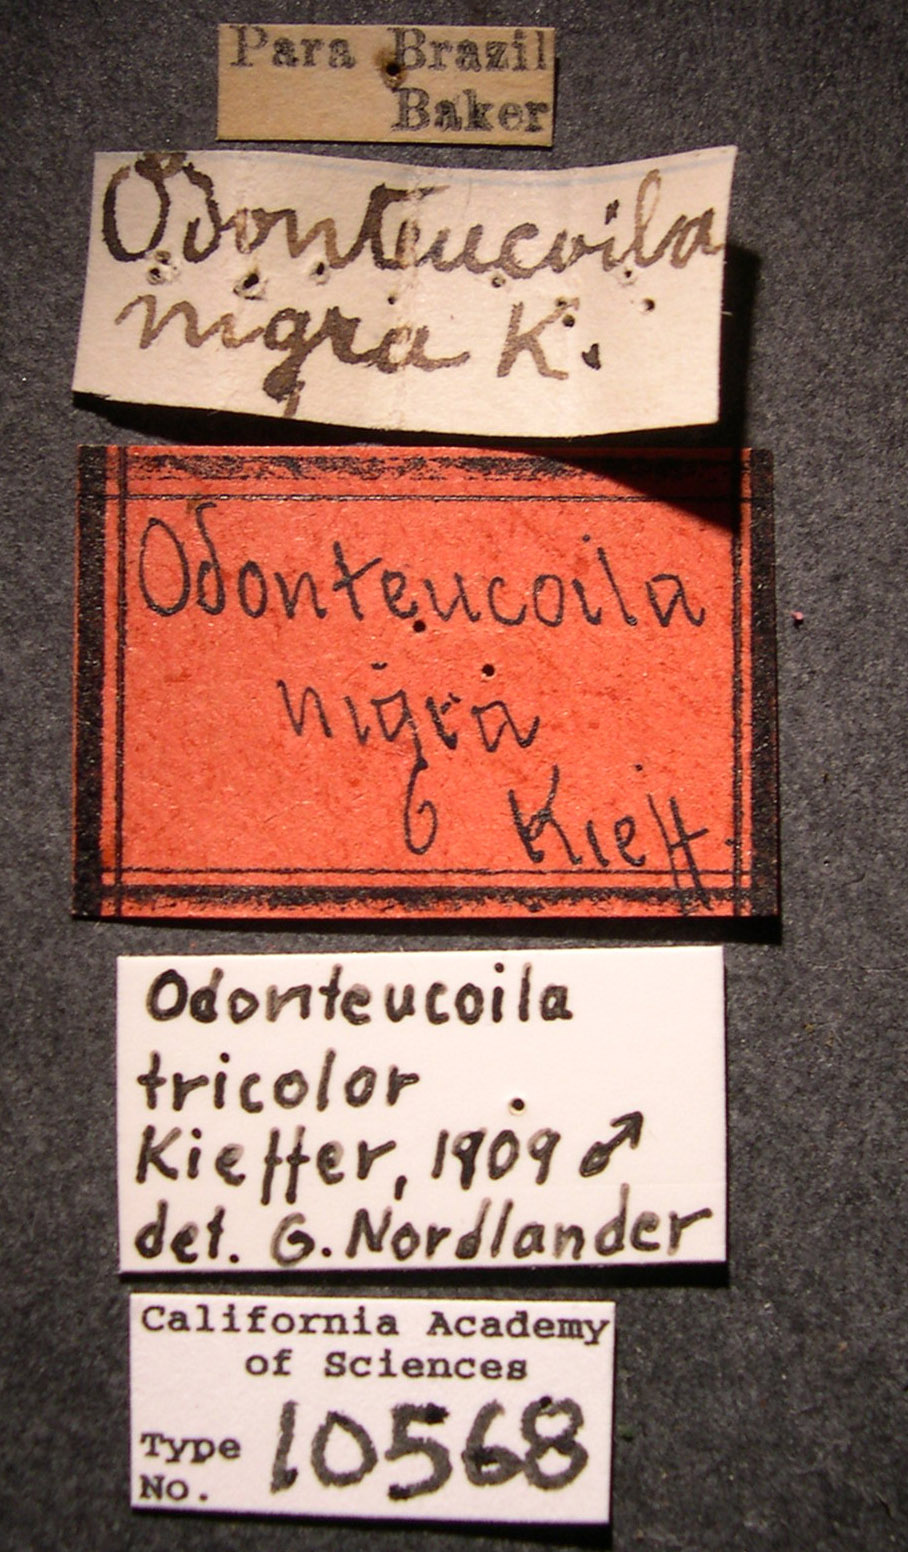 Para Brazil
Baker
Odonteucoila
nigra K.
Odonteucoila
nigra
Kieff.
Odonteucoila
tricolor
Kieffer, 1909 ♂
det. G. Nordlander
California Academy
of Sciences
Type
No. 10568